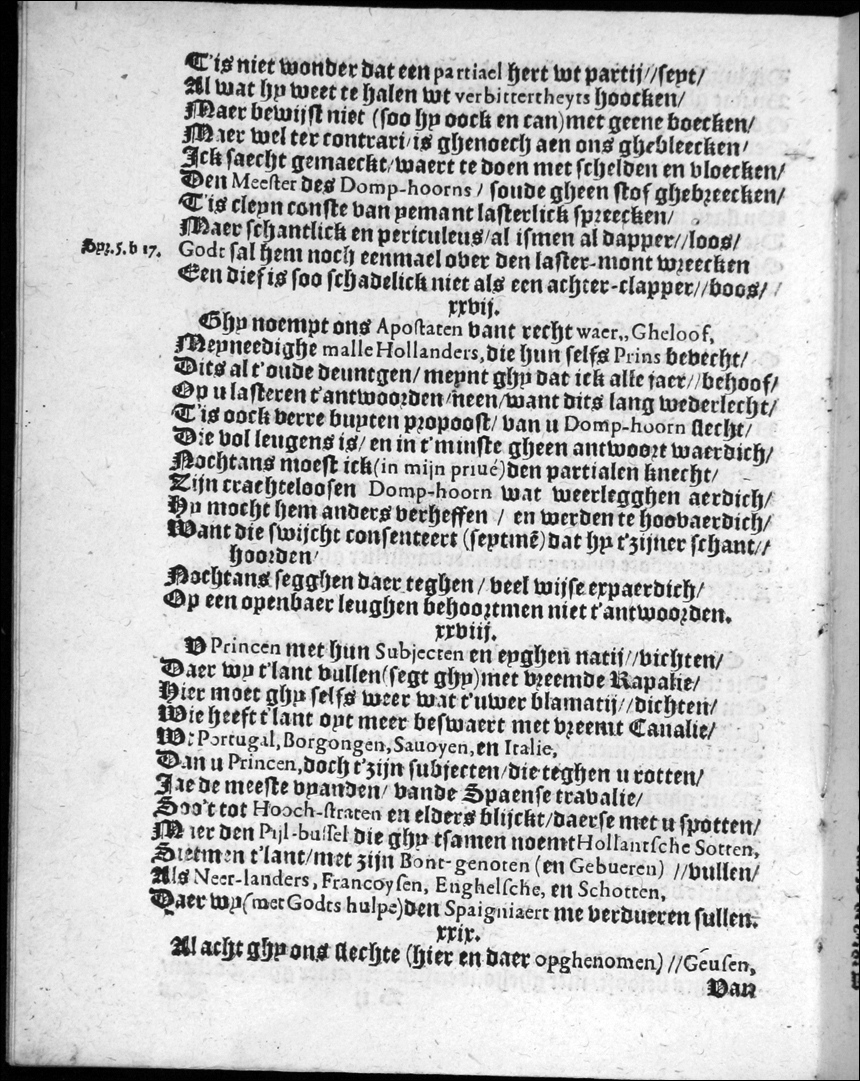 T'is niet wonder dat een partiael hert wt partij//sept/
Al wat hy weet te halen wt verbittertheyts hoocken/
Maer bewijst niet (soo hy oock en can) met geene boecken/
Maer wel ter contrari/is ghenoech aen ons ghebleecken/
Ick saecht gemaeckt/waert te doen met schelden en vloecken/
Den Meester des Domp-hoorns / soude gheen stof ghebreecken/
T'is cleyn conste van yemant lasterlick spreecken/
Maer schantlick en periculeus/al ismen al dapper//loos/
Spr. 5. b 17. Godt sal hem noch eenmael over den laster-mont wreecken
Een dief is soo schadelick niet als een achter-clapper//boos/
xxvij.
Ghy noempt ons Apostaten vant recht waer,, Gheloof,
Meyneedighe malle Hollanders, die hun selfs Prins bevecht/
Dits al t'oude deuntgen/ meynt ghy dat ick alle jaer//behoof/
Op u lasteren t'antwoorden/neen/want dits lang wederlecht/
T'is oock verre buyten propoost/ van u Domp-hoorn slecht/
Die vol leugens is/ en in t'minste gheen antwoort waerdich/
Nochtans moest ick (in mijn privé) den partialen knecht/
Zijn crachteloosen Domp-hoorn wat weerlegghen aerdich/
Hy mocht hem anders verheffen / en werden te hoovaerdich/
Want die swijcht consenteert (septmē) dat hy t'zijner schant//
hoorden/
Nochtans segghen daer teghen / veel wijse expaerdich/
Op een openbaer leughen behoortmen niet t'antwoorden.
xxviij.
V Princen met hun Subjecten en eyghen natij//vichten/
Daer wy t'lant vullen (segt ghy) met vreemde Rapalie/
Hier moet ghy selfs weer wat t'uwer blamatij//dichten/
Wie heeft t'lant oyt meer beswaert met vreemt Canalie/
Wt Portugal, Borgongen, Savoyen, en Italie,
Dan u Princen, doch t'zijn subjecten/die teghen u rotten/
Jae de meeste vyanden/ vande Spaense travalie/
Soo't tot Hooch-straten en elders blijckt/daerse met u spotten/
Maer den Pijl-bussel die ghy tsamen noemt Hollantsche Sotten,
Sietmen t'lant/met zijn Bont-genoten (en Gebueren) //vullen/
Als Neer-landers, Francoysen, Enghelsche, en Schotten,
Daer wy (met Godts hulpe) den Spaigniaert me verdueren sullen.
xxix.
Al acht ghy ons slechte (hier en daer opghenomen) //Geusen,
Van